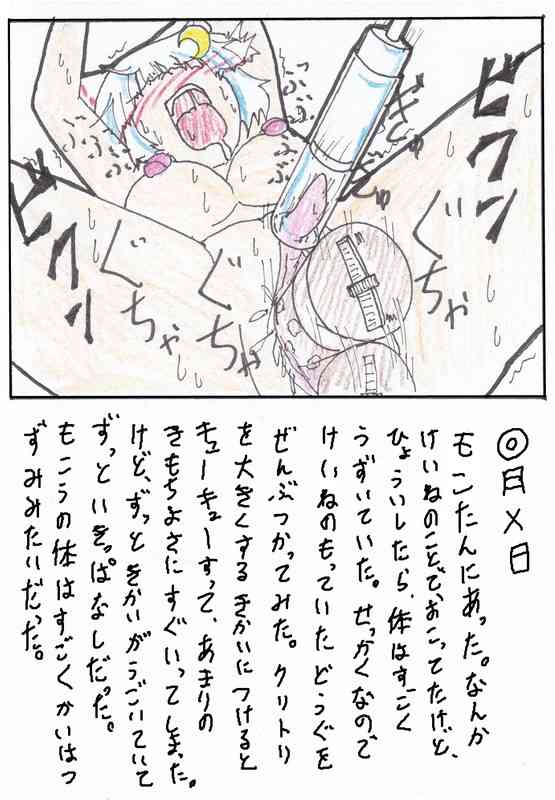 ビクン
ぶぶぶ
ぶぶぶ
きゅ
きゅ
ぐちゃ
ぐちゃ
ぐちゃ
ビクン
◎月×日
もこたんにあった。なんか
けいねのことで、おこってたけど、
ひょういしたら、体はすごく
うずいていた。せっかくなので
けいねのもっていたどうぐを
ぜんぶつかってみた。クリトリ
を大きくするきかいにつけると
キューキューすって、あまりの
きもちよさにすぐいってしまった。
けど、ずっときかいがうごいていて
ずっといきっぱなしだった。
もこうの体はすごくかいはつ
ずみみたいだった。